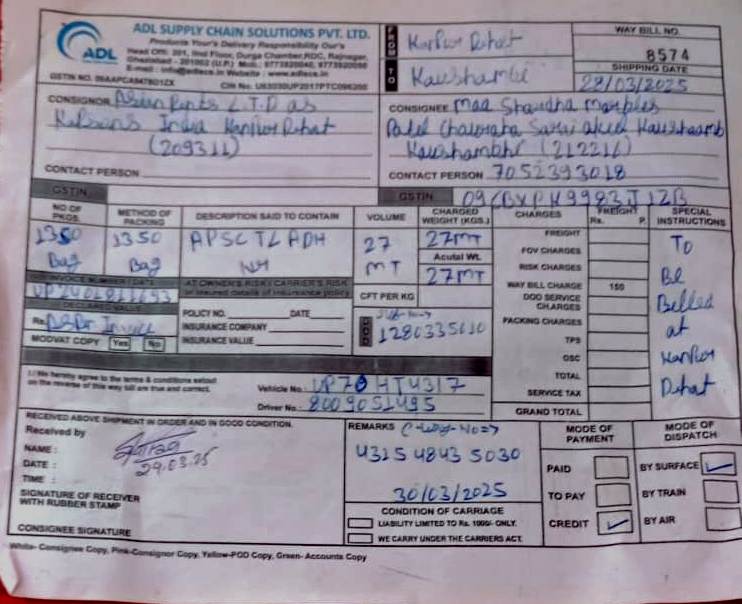 ADL SUPPLY CHAIN SOLUTIONS PVT. LTD.
Products Your's Delivery Responsibility Our's
Head Off: 201, IInd Floor, Durga Chamber, RDC, Rajnagar,
Ghaziabad - 201002 (U.P.)
ADL
FROM
Kanpur Dehat
TO
Kaushambi
WAY BILL NO.
8574
SHIPPING DATE
28/03/2025
CONSIGNOR Asian Paints L.T.D as
India Kanpur Dehat
(209311)
CONTACT PERSON
CONSIGNEE Maa Shardha Marbles
Kaushambhi (212216)
CONTACT PERSON 7052393018
GSTIN
GSTIN
NO OF PKGS.
METHOD OF PACKING
DESCRIPTION SAID TO CONTAIN
VOLUME
CHARGED WEIGHT (KGS.)
CHARGES
FREIGHT
Rs. P.
SPECIAL INSTRUCTIONS
1350
Bag
1350
Bag
APSC TL ADH
27
MT
27MT
Acutal Wt.
27MT
CFT PER KG
FREIGHT
FOV CHARGES
RISK CHARGES
WAY BILL CHARGE 150
DOD SERVICE CHARGES
PACKING CHARGES
TPS
OSC
TOTAL
SERVICE TAX
GRAND TOTAL
To
Be
Billed
at
Kanpur
Dehat
AT OWNER'S RISK/CARRIER'S RISK
POLICY NO. DATE
INSURANCE COMPANY
INSURANCE VALUE
Rs.
MODVAT COPY Yes No
I / We hereby agree to the terms & conditions setout
on the reverse of this way bill are true and correct.
Vehicle No.: UP78 HT4317
Driver No.: 8009051495
RECEIVED ABOVE SHIPMENT IN ORDER AND IN GOOD CONDITION.
Received by
NAME :
DATE :
TIME :
29.03.25
SIGNATURE OF RECEIVER
WITH RUBBER STAMP
CONSIGNEE SIGNATURE
REMARKS
4315 4843 5030
30/03/2025
CONDITION OF CARRIAGE
LIABILITY LIMITED TO Rs. 1000/- ONLY.
WE CARRY UNDER THE CARRIERS ACT.
MODE OF PAYMENT
PAID
TO PAY
CREDIT
MODE OF DISPATCH
BY SURFACE
BY TRAIN
BY AIR
White- Consignee Copy, Pink-Consignor Copy, Yellow-POD Copy, Green- Accounts Copy